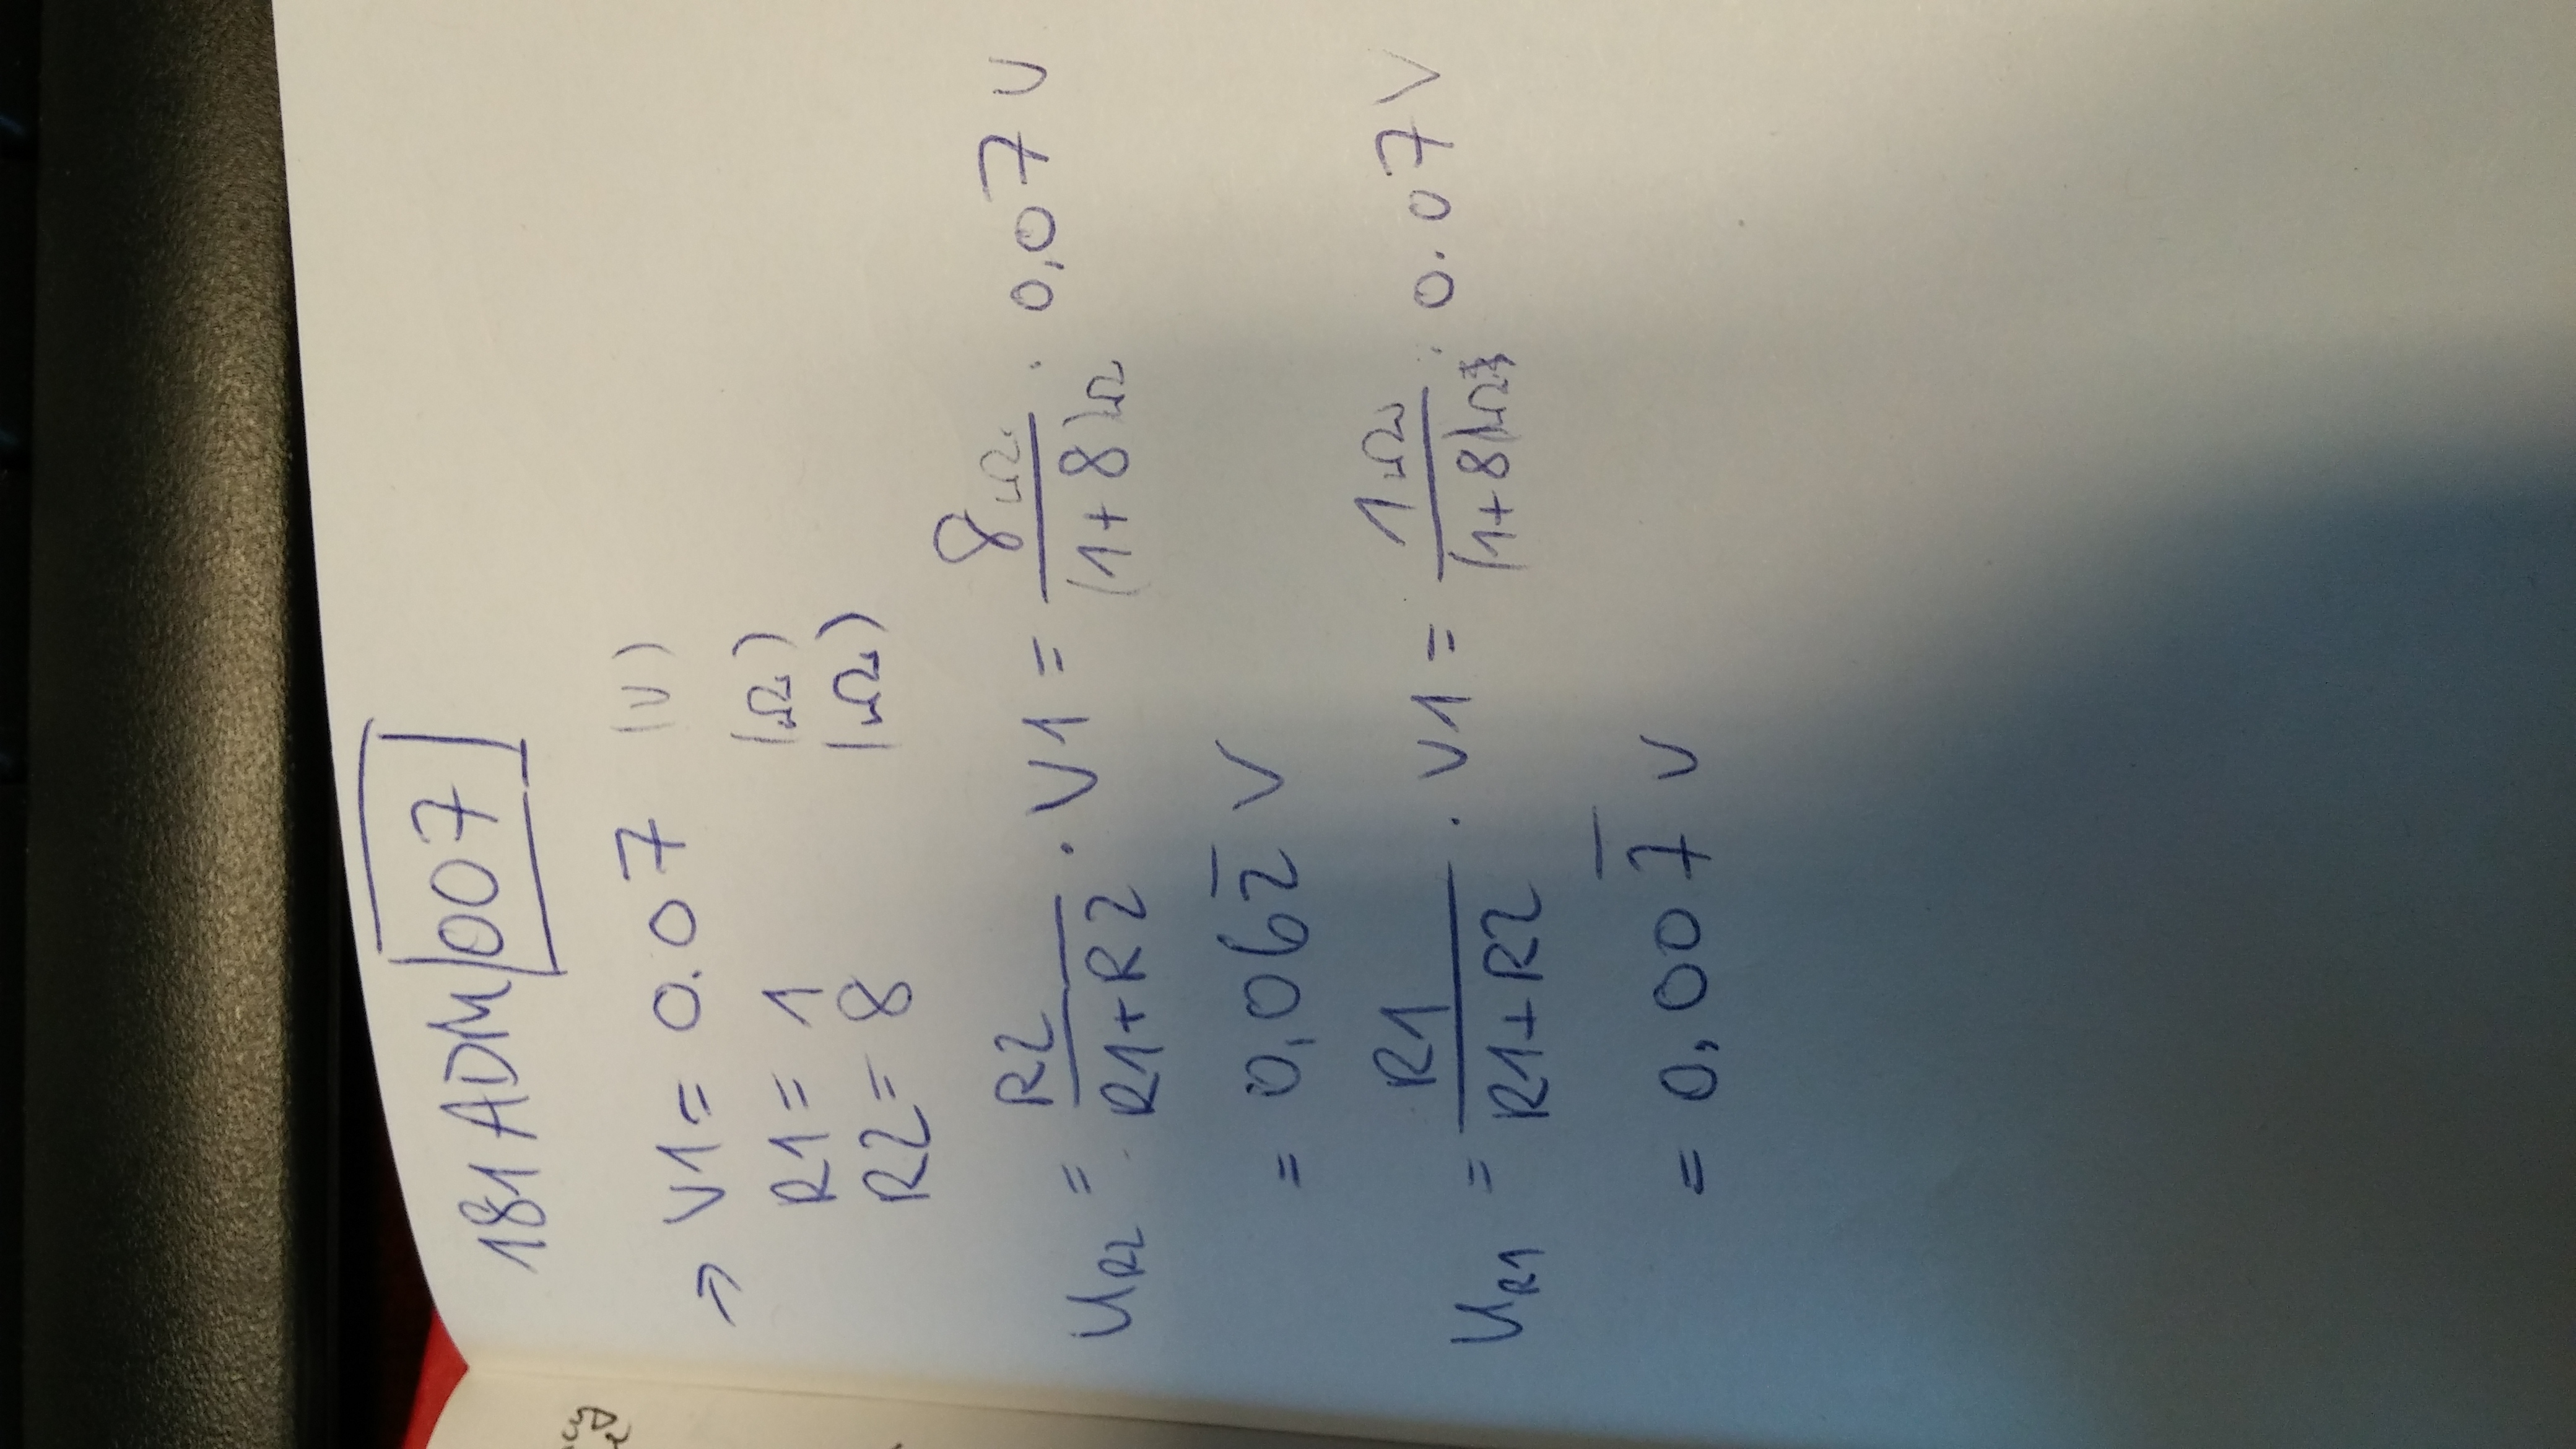 181ADM 007
→ V1 = 0.07 (V)
R1 = 1 (Ω)
R2 = 8 (Ω)
U_R2 = R2 / (R1+R2) · V1 = 8Ω / (1+8)Ω · 0,07 V
= 0,062̅ V
U_R1 = R1 / (R1+R2) · V1 = 1Ω / (1+8)Ω · 0.07 V
= 0,007̅ V